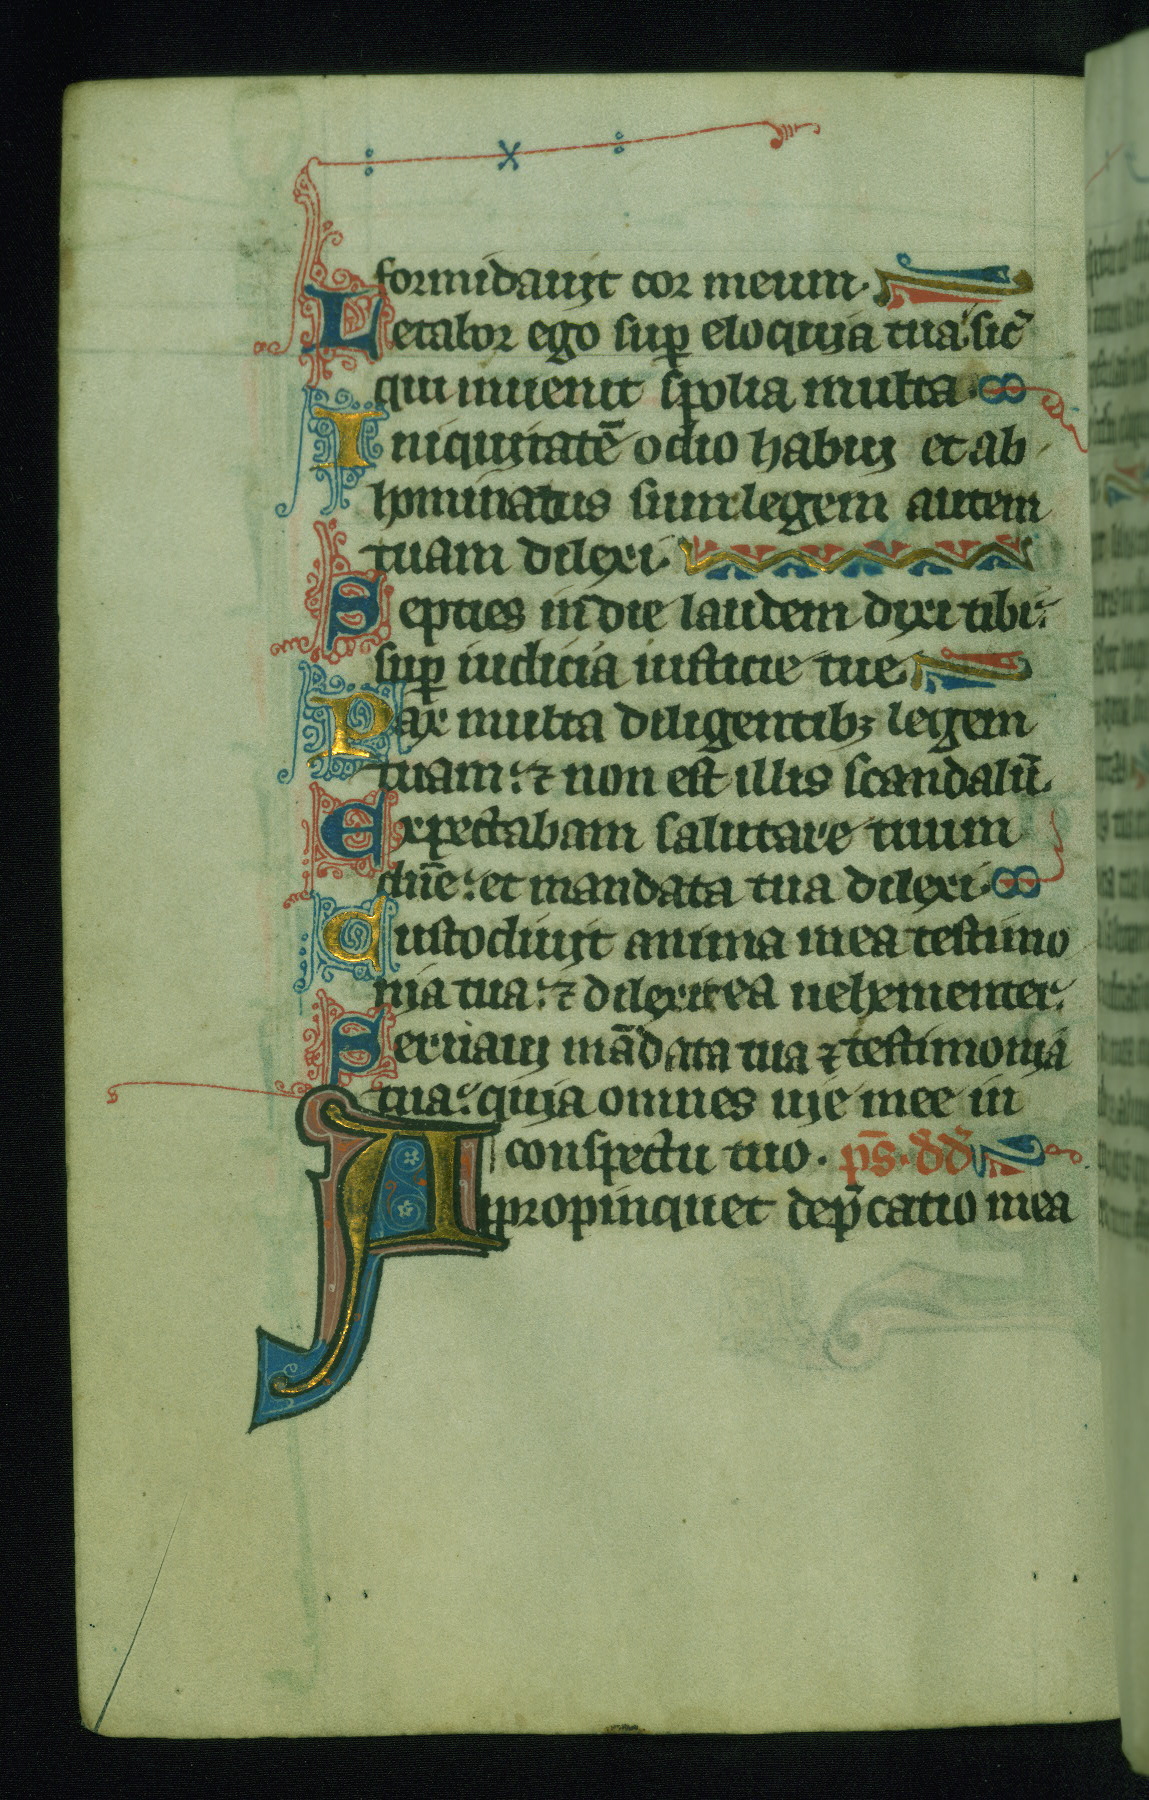 formidauit cor meum.
Letabor ego sup̱ eloquia tua: sic̄
qui inuenit spolia multa.
Iniquitatē odio habui et ab
hominatus sum: legem autem
tuam dilexi.
Septies in die laudem dixi tibi:
sup̱ iudicia iusticie tue.
Pax multa diligentibꝫ legem
tuam: ⁊ non est illis scandalū.
Expectabam salutare tuum
dn̄e: et mandata tua dilexi.
Custodiuit anima mea testimo
nia tua: ⁊ dilexit ea uehementer.
Seruaui mādata tua ⁊ testimonia
tua: quia omnes uie mee in
conspectu tuo. ps̄. dd̄
Appropinquet dep̄catio mea